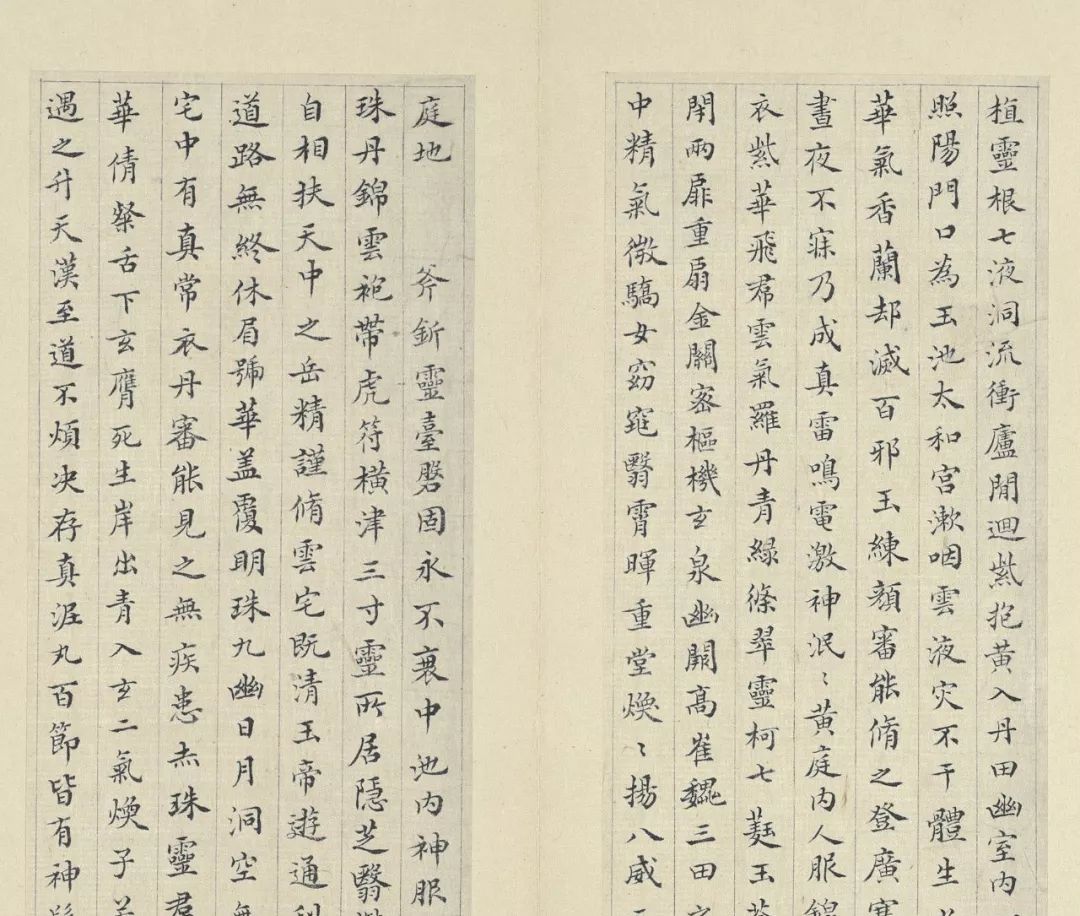 植靈根七液洞流衝廬間迴紫抱黃入丹田幽室內
照陽門口為玉池太和宮漱咽雲液灾不干體生
華氣香蘭却滅百邪玉練顏審能脩之登廣寒
晝夜不寐乃成真雷鳴電激神泯〻黃庭內人服錦
衣紫華飛帬雲氣羅丹青緑絛翠靈柯七蕤玉
閇兩扉重扇金關密樞機玄泉幽闕高崔巍三田
中精氣微驕女窈窕翳霄暉重堂煥〻揚八威
庭地 斧釿靈臺磐固永不衰中池內神服
珠丹錦雲袍帶虎符橫津三寸靈所居隱芝翳
自相扶天中之岳精謹脩雲宅既清玉帝遊通利
道路無終休眉號華盖覆明珠九幽日月洞空無
宅中有真常衣丹審能見之無疾患赤珠靈君
華倩粲舌下玄膺死生岸出青入玄二氣煥子若
遇之升天漢至道不煩决存真泥丸百節皆有神